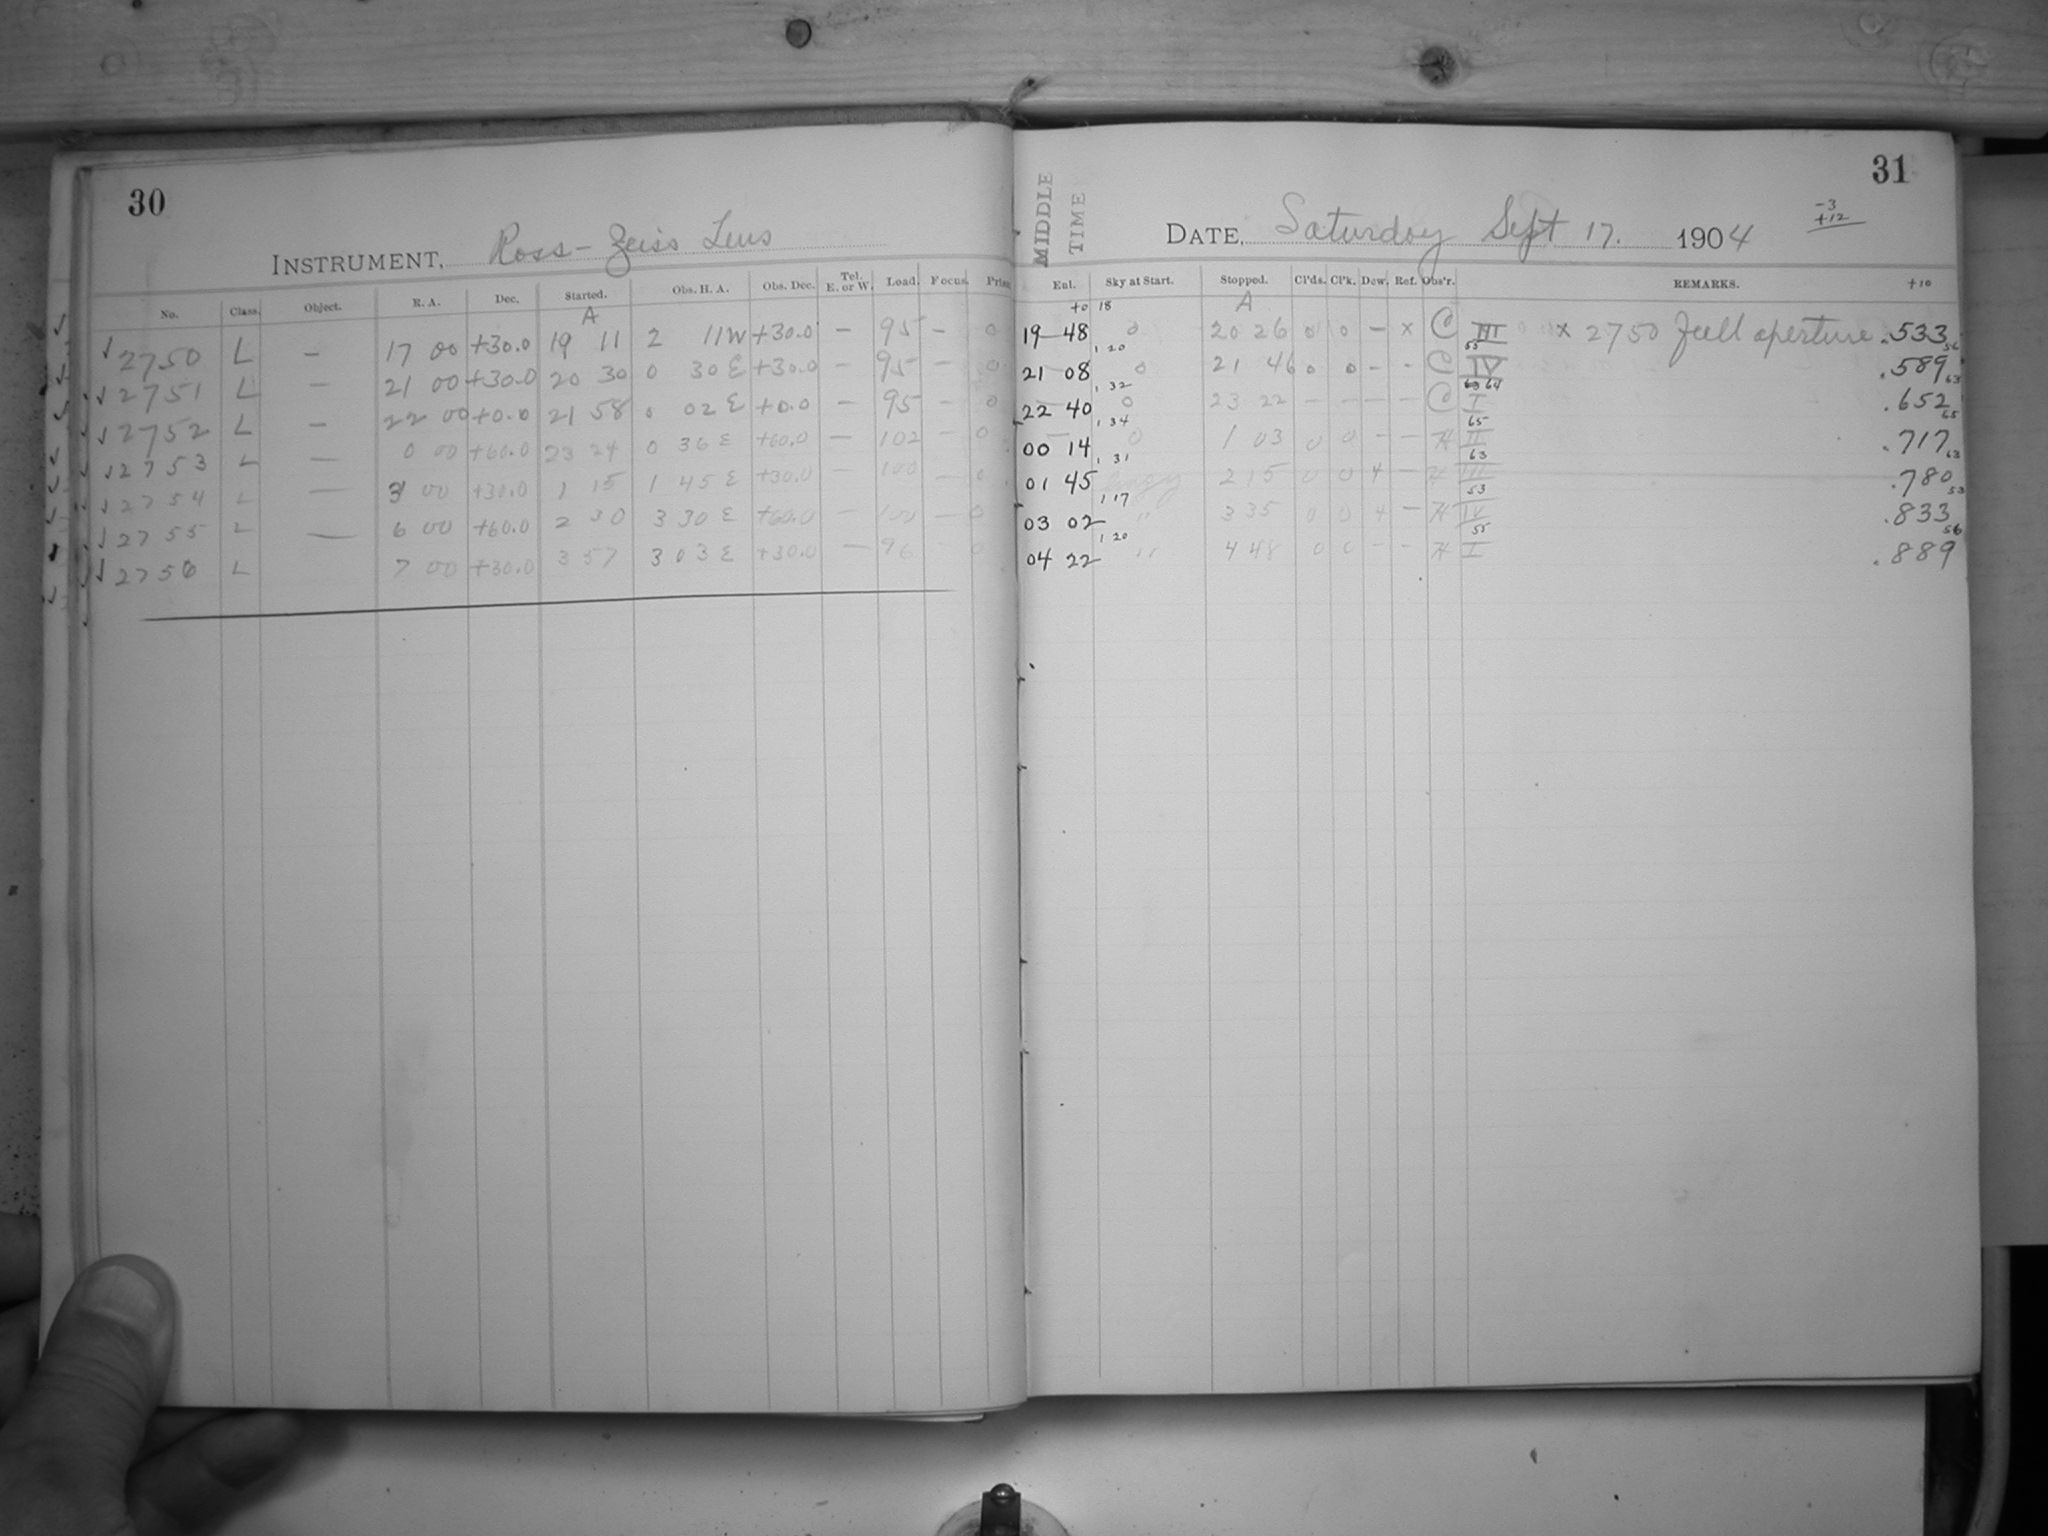 30
INSTRUMENT, Ross-Zeiss Lens
No. Class. Object. R. A. Dec. Started. Obs. H. A. Obs. Dec. Tel. E. or W. Load. Focus.
A
2750 L — 17 00 +30.0 19 11 2 11W +30.0 — 95 — 0
2751 L — 21 00 +30.0 20 30 0 30 E +30.0 — 95 — 0
2752 L — 22 00 +0.0 21 58 0 02 E +0.0 — 95 — 0
2753 L — 0 00 +60.0 23 24 0 36 E +60.0 — 102 — 0
2754 L — 3 00 +30.0 1 15 1 45 E +30.0 — 100 — 0
2755 L — 6 00 +60.0 2 30 3 30 E +60.0 — 100 — 0
2756 L 7 00 +30.0 3 57 3 03 E +30.0 — 96 — 0
31
MIDDLE
TIME
-3
+12
DATE, Saturday Sept 17. 1904
Enl. Sky at Start. Stopped. Cl'ds. Cl'k. Dew. Ref. Obs'r. REMARKS. +10
+0 18 A
19 48 0 20 26 0 0 — x C III x 2750 Full aperture .533
1 20 55 56
21 08 0 21 46 0 0 - - C IV .589
1 32 63 64 63
22 40 0 23 22 — — — — C I .652
1 34 65 65
00 14 0 1 03 0 0 — — H II .717
1 31 63 63
01 45 2 15 0 0 + — H III .780
1 17 53 53
03 02 " 3 35 0 0 + — H IV .833
1 20 55 56
04 22 " 4 48 0 0 — — H I .889